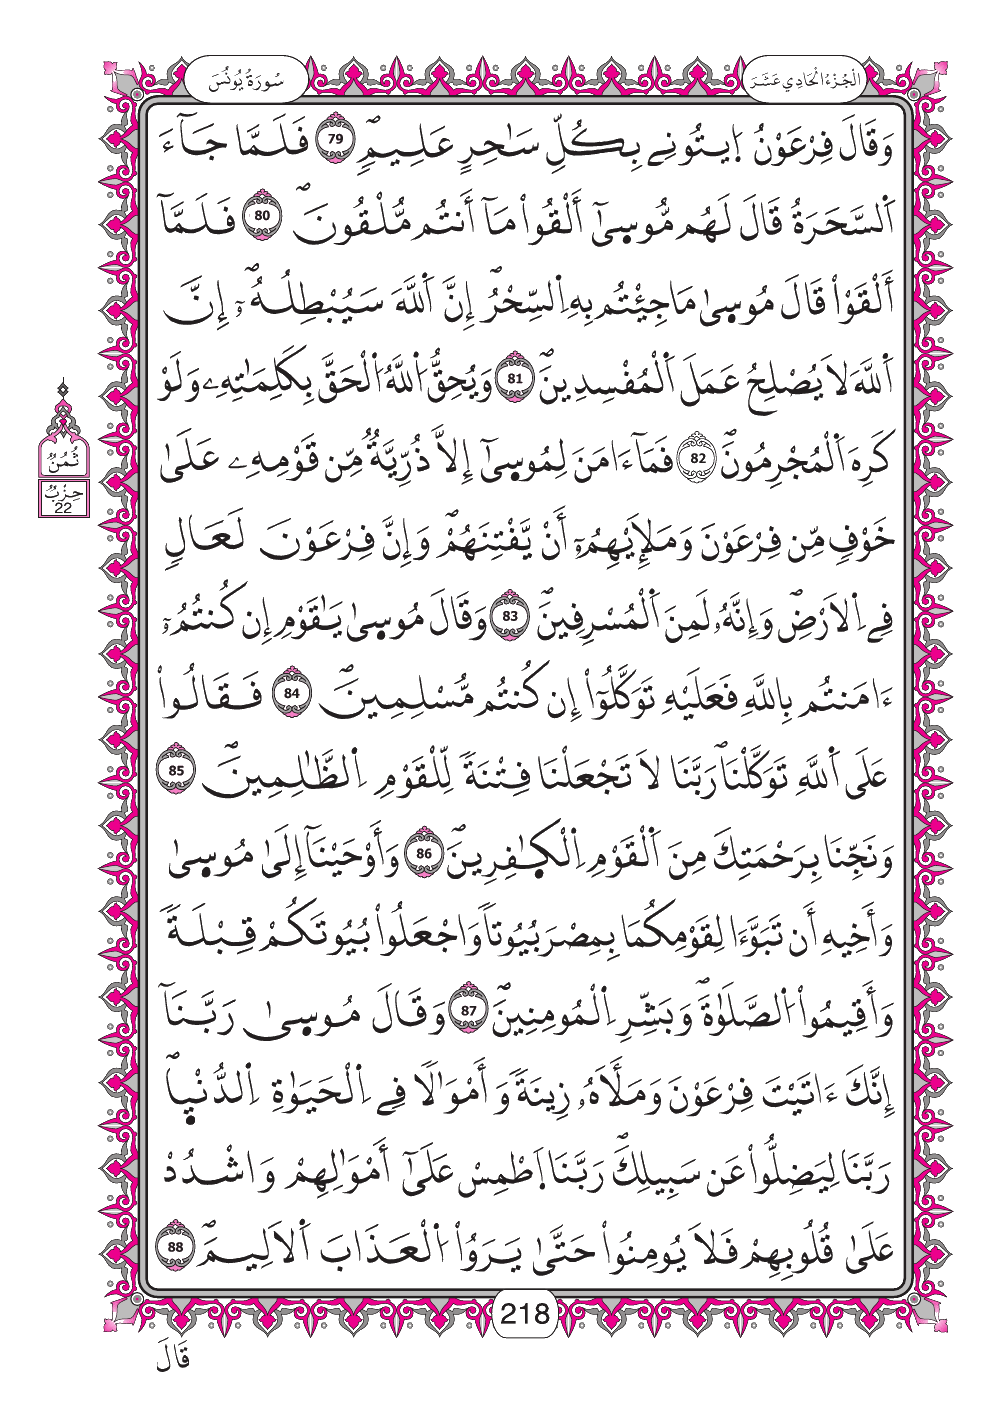 الجُزْءُ الْحَادِي عَشَرَ
سُورَةُ يُونُسَ
وَقَالَ فِرْعَوْنُ اُ۪يتُونِے بِكُلِّ سَٰحِرٍ عَلِيمٖۖ 79 فَلَمَّا جَآءَ
اَ۬لسَّحَرَةُ قَالَ لَهُم مُّوس۪ىٰٓ أَلْقُواْ مَآ أَنتُم مُّلْقُونَۖ 80 فَلَمَّآ
أَلْقَوْاْ قَالَ مُوس۪ىٰ مَا جِئْتُم بِهِ اِ۬لسِّحْرُۖ إِنَّ اَ۬للَّهَ سَيُبْطِلُهُۥٓۖ إِنَّ
اَ۬للَّهَ لَا يُصْلِحُ عَمَلَ اَ۬لْمُفْسِدِينَۖ 81 وَيُحِقُّ اُ۬للَّهُ اُ۬لْحَقَّ بِكَلِمَٰتِهِۦ وَلَوْ
كَرِهَ اَ۬لْمُجْرِمُونَۖ 82 فَمَآ ءَامَنَ لِمُوس۪ىٰٓ إِلَّا ذُرِّيَّةٞ مِّن قَوْمِهِۦ عَلَىٰ
خَوْفٖ مِّن فِرْعَوْنَ وَمَلَإِيْهِمُۥٓ أَنْ يَّفْتِنَهُمْۖ وَإِنَّ فِرْعَوْنَ لَعَالٖ
فِے اِ۬لَارْضِۖ وَإِنَّهُۥ لَمِنَ اَ۬لْمُسْرِفِينَۖ 83 وَقَالَ مُوس۪ىٰ يَٰقَوْمِ إِن كُنتُمُۥٓ
ءَامَنتُم بِاللَّهِ فَعَلَيْهِ تَوَكَّلُوٓاْ إِن كُنتُم مُّسْلِمِينَۖ 84 فَقَالُواْ
عَلَى اَ۬للَّهِ تَوَكَّلْنَاۖ رَبَّنَا لَا تَجْعَلْنَا فِتْنَةٗ لِّلْقَوْمِ اِ۬لظَّٰلِمِينَۖ 85
وَنَجِّنَا بِرَحْمَتِكَ مِنَ اَ۬لْقَوْمِ اِ۬لْكٰ۪فِرِينَۖ 86 وَأَوْحَيْنَآ إِلَىٰ مُوس۪ىٰ
وَأَخِيهِ أَن تَبَوَّءَا لِقَوْمِكُمَا بِمِصْرَ بُيُوتاٗ وَاجْعَلُواْ بُيُوتَكُمْ قِبْلَةٗ
وَأَقِيمُواْ اُ۬لصَّلَوٰةَۖ وَبَشِّرِ اِ۬لْمُومِنِينَۖ 87 وَقَالَ مُوس۪ىٰ رَبَّنَآ
إِنَّكَ ءَاتَيْتَ فِرْعَوْنَ وَمَلَأَهُۥ زِينَةٗ وَأَمْوَٰلٗا فِے اِ۬لْحَيَوٰةِ اِ۬لدُّنْي۪اۖ
رَبَّنَا لِيَضِلُّواْ عَن سَبِيلِكَۖ رَبَّنَا اَ۪طْمِسْ عَلَىٰٓ أَمْوَٰلِهِمْ وَاشْدُدْ
عَلَىٰ قُلُوبِهِمْ فَلَا يُومِنُواْ حَتَّىٰ يَرَوُاْ اُ۬لْعَذَابَ اَ۬لَالِيمَۖ 88
ثُمُنٌ
حِزْبٌ
22
218
قَالَ